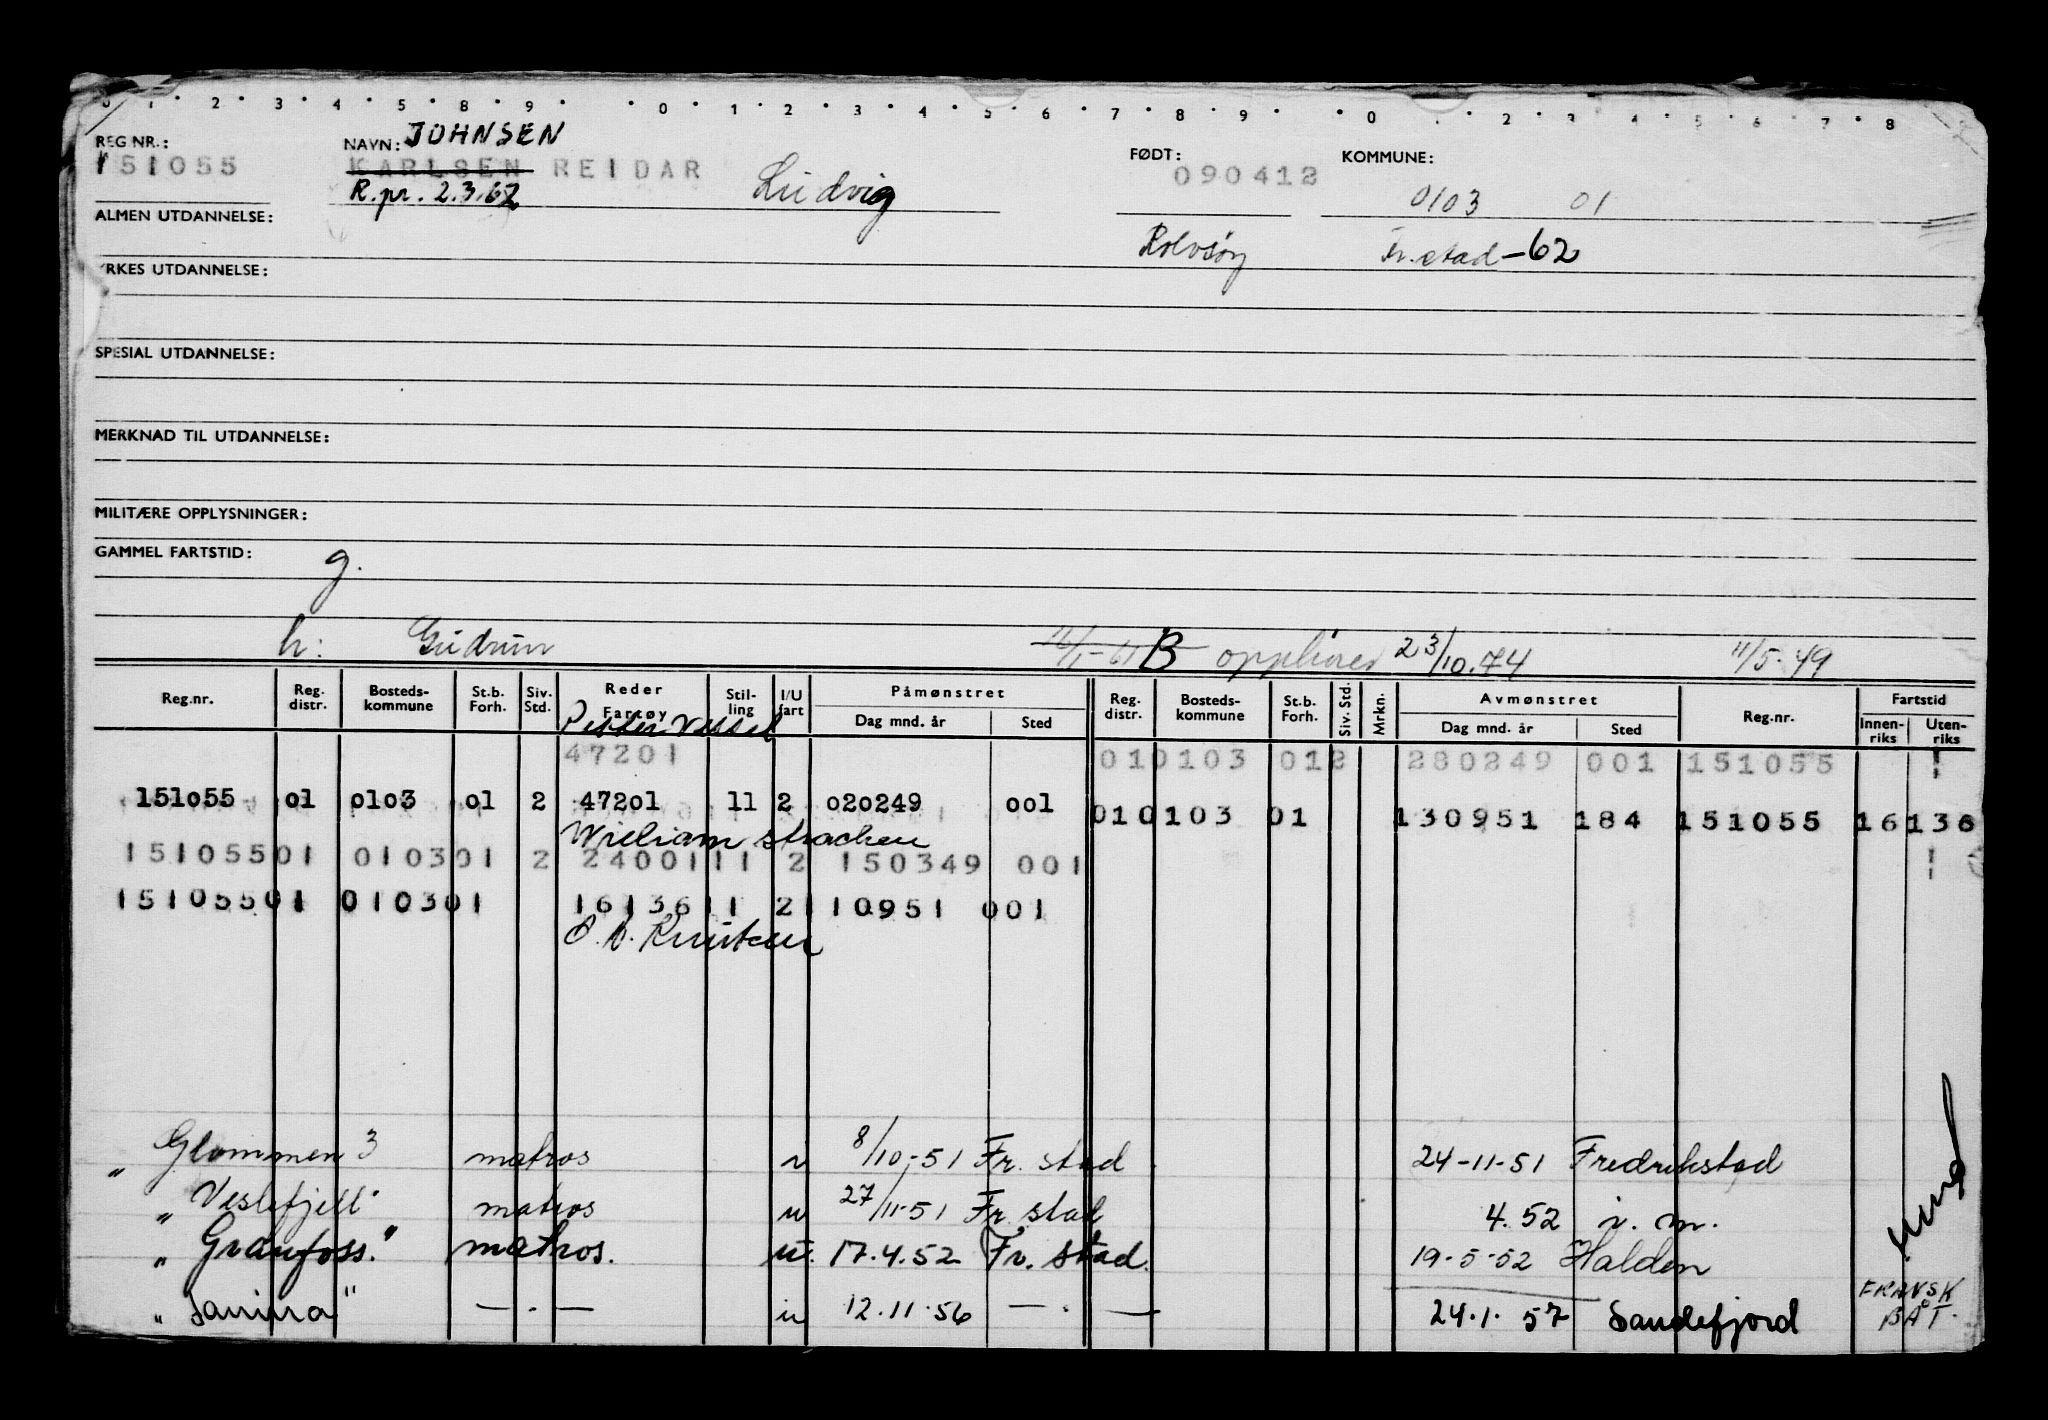 0 1 2 3 4 5 8 9 0 1 2 3 4 5 6 7 8 9 0 2 3 4 5 6 7 8
REG NR.: NAVN: JOHNSEN FØDT: KOMMUNE:
151055 KARLSEN REIDAR Ludvig 090412 0103 01
R. pr. 2.3.62
ALMEN UTDANNELSE: Rolvsøy Fr.stad-62
YRKES UTDANNELSE:
SPESIAL UTDANNELSE:
MERKNAD TIL UTDANNELSE:
MILITÆRE OPPLYSNINGER:
GAMMEL FARTSTID: g.
h: Gudrun B opphører 23/10.74 11/5-49
Reg.nr. Reg. distr. Bosteds-kommune St.b. Forh. Siv. Std. Reder Fartøy Stil-ling I/U fart Påmønstret Dag mnd. år Sted Reg. distr. Bosteds-kommune St.b. Forh. Siv. Std. Mrkn. Avmønstret Dag mnd. år Sted Reg.nr. Fartstid Innen-riks Uten-riks
Petter Vessel
47201 010103 012 280249 001 151055 1
151055 01 0103 01 2 47201 11 2 020249 001 010103 01 130951 184 151055 16 136
William Strachan
15105501 010301 2 2400111 2 150349 001 1
15105501 010301 1613611 2 110951 001
"Glommen 3 matros 8/10-51 Fr. stad 24-11-51 Fredrikstad
"Veslefjell" matros u 27/11-51 Fr. stad 4.52 i. m.
"Granfoss." matros. u. 17.4.52 Fr. stad. 19-5-52 Halden
FRANSK BÅT.
" " — . — u 12.11.56 — . — 24.1.57 Sandefjord